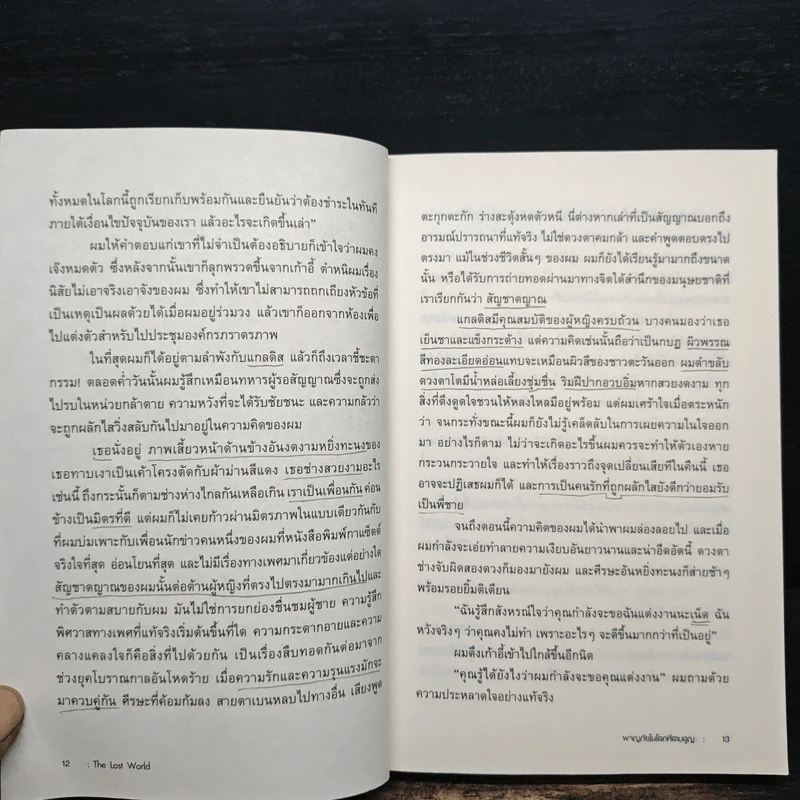 ทั้งหมดในโลกนี้ถูกเรียกเก็บพร้อมกันและยืนยันว่าต้องชำระในทันที
ภายใต้เงื่อนไขปัจจุบันของเรา แล้วอะไรจะเกิดขึ้นเล่า”
ผมให้คำตอบแก่เขาที่ไม่จำเป็นต้องอธิบายก็เข้าใจว่าผมคง
เจ๊งหมดตัว ซึ่งหลังจากนั้นเขาก็ลุกพรวดขึ้นจากเก้าอี้ ตำหนิผมเรื่อง
นิสัยไม่เอาจริงเอาจังของผม ซึ่งทำให้เขาไม่สามารถถกเถียงหัวข้อที่
เป็นเหตุเป็นผลด้วยได้เมื่อผมอยู่ร่วมวง แล้วเขาก็ออกจากห้องเพื่อ
ไปแต่งตัวสำหรับไปประชุมองค์กรภราดรภาพ
ในที่สุดผมก็ได้อยู่ตามลำพังกับแกลดิส แล้วก็ถึงเวลาชี้ชะตา
กรรม! ตลอดค่ำวันนั้นผมรู้สึกเหมือนทหารผู้รอสัญญาณซึ่งจะถูกส่ง
ไปรบในหน่วยกล้าตาย ความหวังที่จะได้รับชัยชนะ และความกลัวว่า
จะถูกผลักไสวิ่งสลับกันไปมาอยู่ในความคิดของผม
เธอนั่งอยู่ ภาพเสี้ยวหน้าด้านข้างอันงดงามหยิ่งทะนงของ
เธอทาบเงาเป็นเค้าโครงตัดกับผ้าม่านสีแดง เธอช่างสวยงามอะไร
เช่นนี้ ถึงกระนั้นก็ตามช่างห่างไกลกันเหลือเกิน เราเป็นเพื่อนกัน ค่อน
ข้างเป็นมิตรที่ดี แต่ผมก็ไม่เคยก้าวผ่านมิตรภาพในแบบเดียวกันกับ
ที่ผมบ่มเพาะกับเพื่อนนักข่าวคนหนึ่งของผมที่หนังสือพิมพ์กาแซ็ตต์
จริงใจที่สุด อ่อนโยนที่สุด และไม่มีเรื่องทางเพศมาเกี่ยวข้องแต่อย่างใด
สัญชาตญาณของผมนั้นต่อต้านผู้หญิงที่ตรงไปตรงมามากเกินไปและ
ทำตัวตามสบายกับผม มันไม่ใช่การยกย่องชื่นชมผู้ชาย ความรู้สึก
พิศวาสทางเพศที่แท้จริงเริ่มต้นขึ้นที่ใด ความกระดากอายและความ
คลางแคลงใจก็คือสิ่งที่ไปด้วยกัน เป็นเรื่องสืบทอดกันต่อมาจาก
ช่วงยุคโบราณกาลอันโหดร้าย เมื่อความรักและความรุนแรงมักจะ
มาควบคู่กัน ศีรษะที่ค้อมก้มลง สายตาเบนหลบไปทางอื่น เสียงพูด
12 : The Lost World
ตะกุกตะกัก ร่างสะดุ้งหดตัวหนี นี่ต่างหากเล่าที่เป็นสัญญาณบอกถึง
อารมณ์ปรารถนาที่แท้จริง ไม่ใช่ดวงตาคมกล้า และคำพูดตอบตรงไป
ตรงมา แม้ในช่วงชีวิตสั้นๆ ของผม ผมก็ยังได้เรียนรู้มามากถึงขนาด
นั้น หรือได้รับการถ่ายทอดผ่านมาทางจิตใต้สำนึกของมนุษยชาติที่
เราเรียกกันว่า สัญชาตญาณ
แกลดิสมีคุณสมบัติของผู้หญิงครบถ้วน บางคนมองว่าเธอ
เย็นชาและแข็งกระด้าง แต่ความคิดเช่นนั้นถือว่าเป็นกบฏ ผิวพรรณ
สีทองละเอียดอ่อนแทบจะเหมือนผิวสีของชาวตะวันออก ผมดำขลับ
ดวงตาโตมีน้ำหล่อเลี้ยงชุ่มชื่น ริมฝีปากอวบอิ่มหากสวยงดงาม ทุก
สิ่งที่ดึงดูดใจชวนให้หลงใหลมีอยู่พร้อม แต่ผมเศร้าใจเมื่อตระหนัก
ว่า จนกระทั่งขณะนี้ผมก็ยังไม่รู้เคล็ดลับในการเผยความในใจออก
มา อย่างไรก็ตาม ไม่ว่าจะเกิดอะไรขึ้นผมควรจะทำให้ตัวเองหาย
กระวนกระวายใจ และทำให้เรื่องราวถึงจุดเปลี่ยนเสียทีในคืนนี้ เธอ
อาจจะปฏิเสธผมก็ได้ และการเป็นคนรักที่ถูกผลักไสยังดีกว่ายอมรับ
เป็นพี่ชาย
จนถึงตอนนี้ความคิดของผมได้นำพาผมล่องลอยไป และเมื่อ
ผมกำลังจะเอ่ยทำลายความเงียบอันยาวนานและน่าอึดอัดนี้ ดวงตา
ช่างจับผิดสองดวงก็มองมายังผม และศีรษะอันหยิ่งทะนงก็ส่ายช้าๆ
พร้อมรอยยิ้มติเตียน
“ฉันรู้สึกสังหรณ์ใจว่าคุณกำลังจะขอฉันแต่งงานนะเน็ด ฉัน
หวังจริงๆ ว่าคุณคงไม่ทำ เพราะอะไรๆ จะดีขึ้นมากกว่าที่เป็นอยู่”
ผมดึงเก้าอี้เข้าไปใกล้ขึ้นอีกนิด
“คุณรู้ได้ยังไงว่าผมกำลังจะขอคุณแต่งงาน” ผมถามด้วย
ความประหลาดใจอย่างแท้จริง
ผจญภัยในโลกที่สาบสูญ : 13